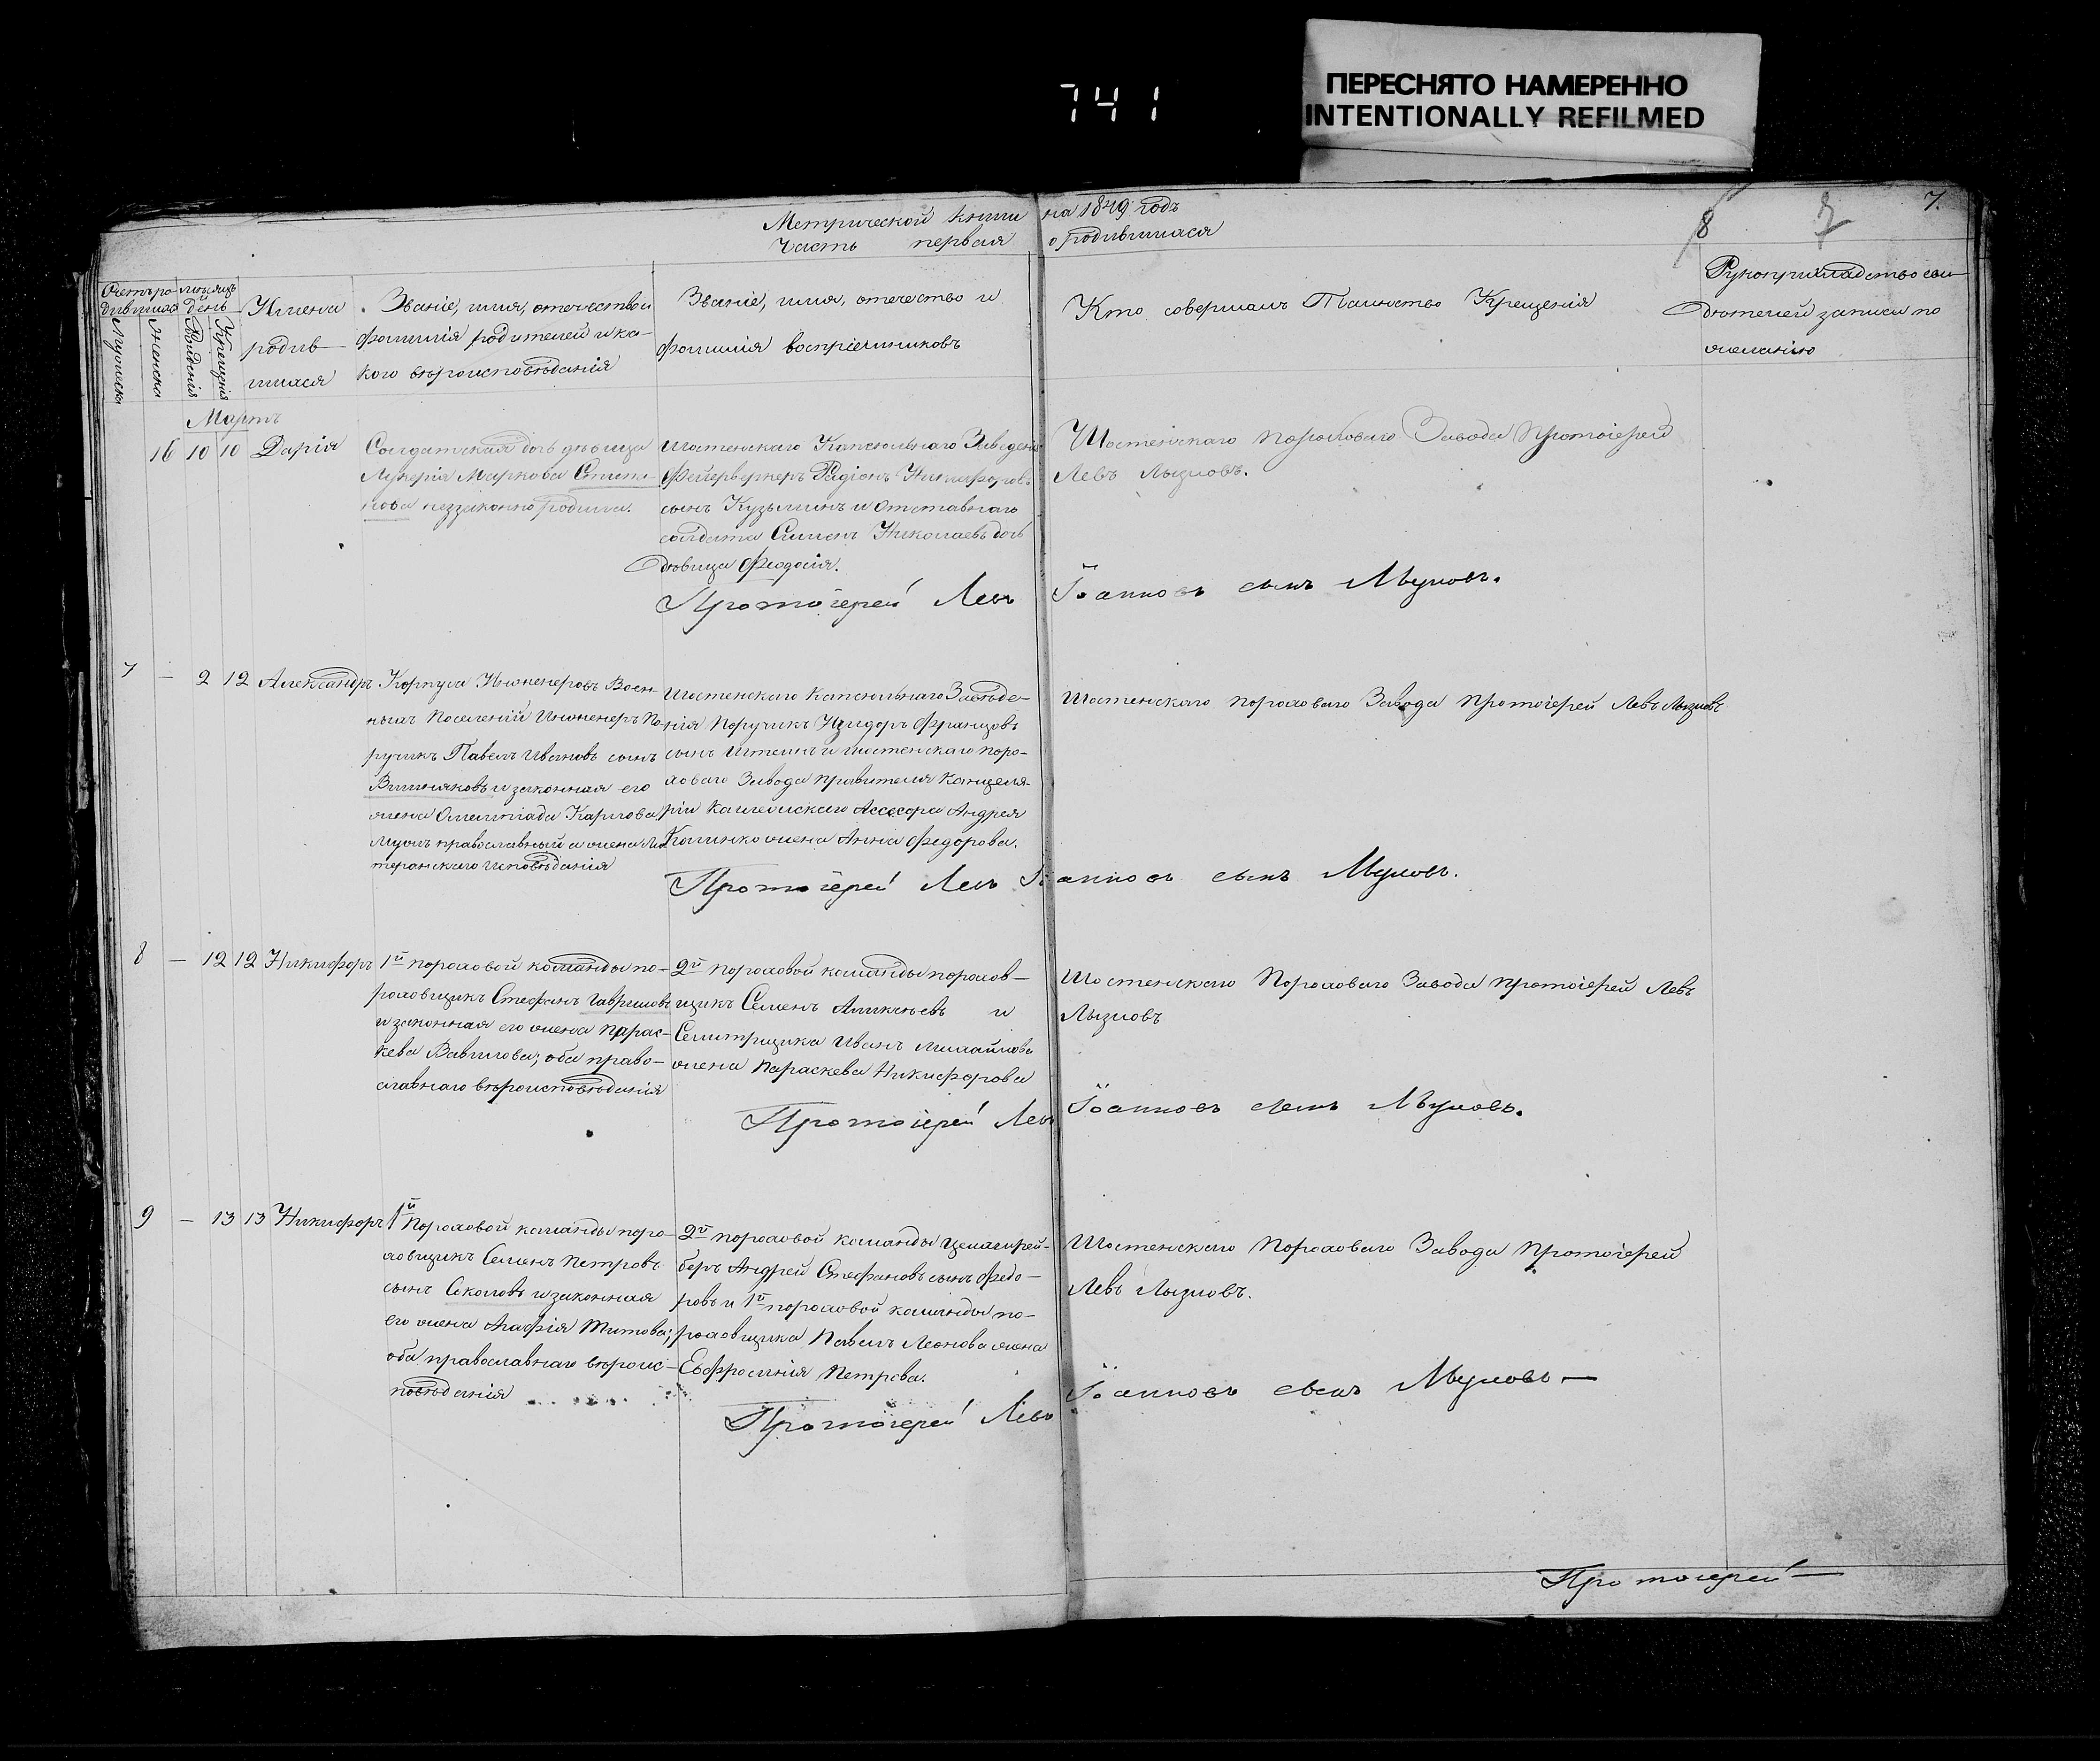 741
ПЕРЕСНЯТО НАМЕРЕННО
INTENTIONALLY REFILMED
Метрической книги на 1849 годъ
часть первая о родившихся
8 7 7.
Счетъ ро-
дившихся
Мѣсяцъ
день
Мужеска
Женска
Рожденія
Крещенія
Имена
родив-
шихся
Званіе, имя, отчество и
фамилія родителей и ка-
кого вѣроисповѣданія
Званіе, имя, отчество и
фамилія воспріемниковъ
Кто совершалъ Таинство Крещенія
Рукоприкладство сви-
дѣтелей записи по
желанію
Мартъ
16 10 10 Дарія
Солдатская дочь дѣвица
Лукерія Маркова
незаконно родила.
Шостенскаго Капсюльнаго Заведенія
Фейерверкеръ Родіонъ Никифоровъ
сынъ Кузьминъ и Отставнаго
солдата Симеонъ Николаевъ дочь
дѣвица Феодосія.
Шостенскаго Пороховаго Завода Протоіерей
Левъ Лызловъ.
Протоіерей Левъ Іоанновъ сынъ Лызловъ.
7 — 2 12 Александръ
Корпуса Инженеровъ Воен-
ныхъ Поселеній Инженеръ По-
ручикъ Павелъ Ивановъ сынъ
Вишняковъ и законная его
жена Олимпіада Карлова,
мужъ православный а жена Лю-
теранскаго исповѣданія
Шостенскаго Капсюльнаго Заведе-
нія Поручикъ Изидоръ Францовъ
сынъ Штейнъ и шостенскаго поро-
ховаго Завода правителя Канцеля-
ріи Коллежскаго Ассесора Андрея
Калинко жена Анна Федорова.
Шостенскаго пороховаго Завода Протоіерей Левъ Лызловъ
Протоіерей Левъ Іоанновъ сынъ Лызловъ.
8 — 12 12 Никифоръ
1й пороховой команды по-
роховщикъ Стефанъ Гавриловъ
и законная его жена Парас-
кева Вавилова; оба право-
славнаго вѣроисповѣданія
2й пороховой команды порохов-
щикъ Семенъ Аликѣевъ и
Селитрщика Иванъ Михайлова
жена Параскева Никифорова
Шостенскаго Пороховаго Завода протоіерей Левъ
Лызловъ
Протоіерей Левъ Іоанновъ сынъ Лызловъ.
9 — 13 13 Никифоръ
1й Пороховой команды поро-
ховщикъ Семенъ Петровъ
сынъ Соколовъ и законная
его жена Агафія Титова;
оба православнаго вѣроис-
повѣданія
2й пороховой команды Цейхшрей-
беръ Андрей Стефановъ сынъ Федо-
ровъ и 1й пороховой команды по-
роховщика Павелъ Леонова жена
Евфросинія Петрова.
Шостенскаго Пороховаго Завода протоіерей
Левъ Лызловъ.
Протоіерей Левъ Іоанновъ сынъ Лызловъ —
Протоіерей —